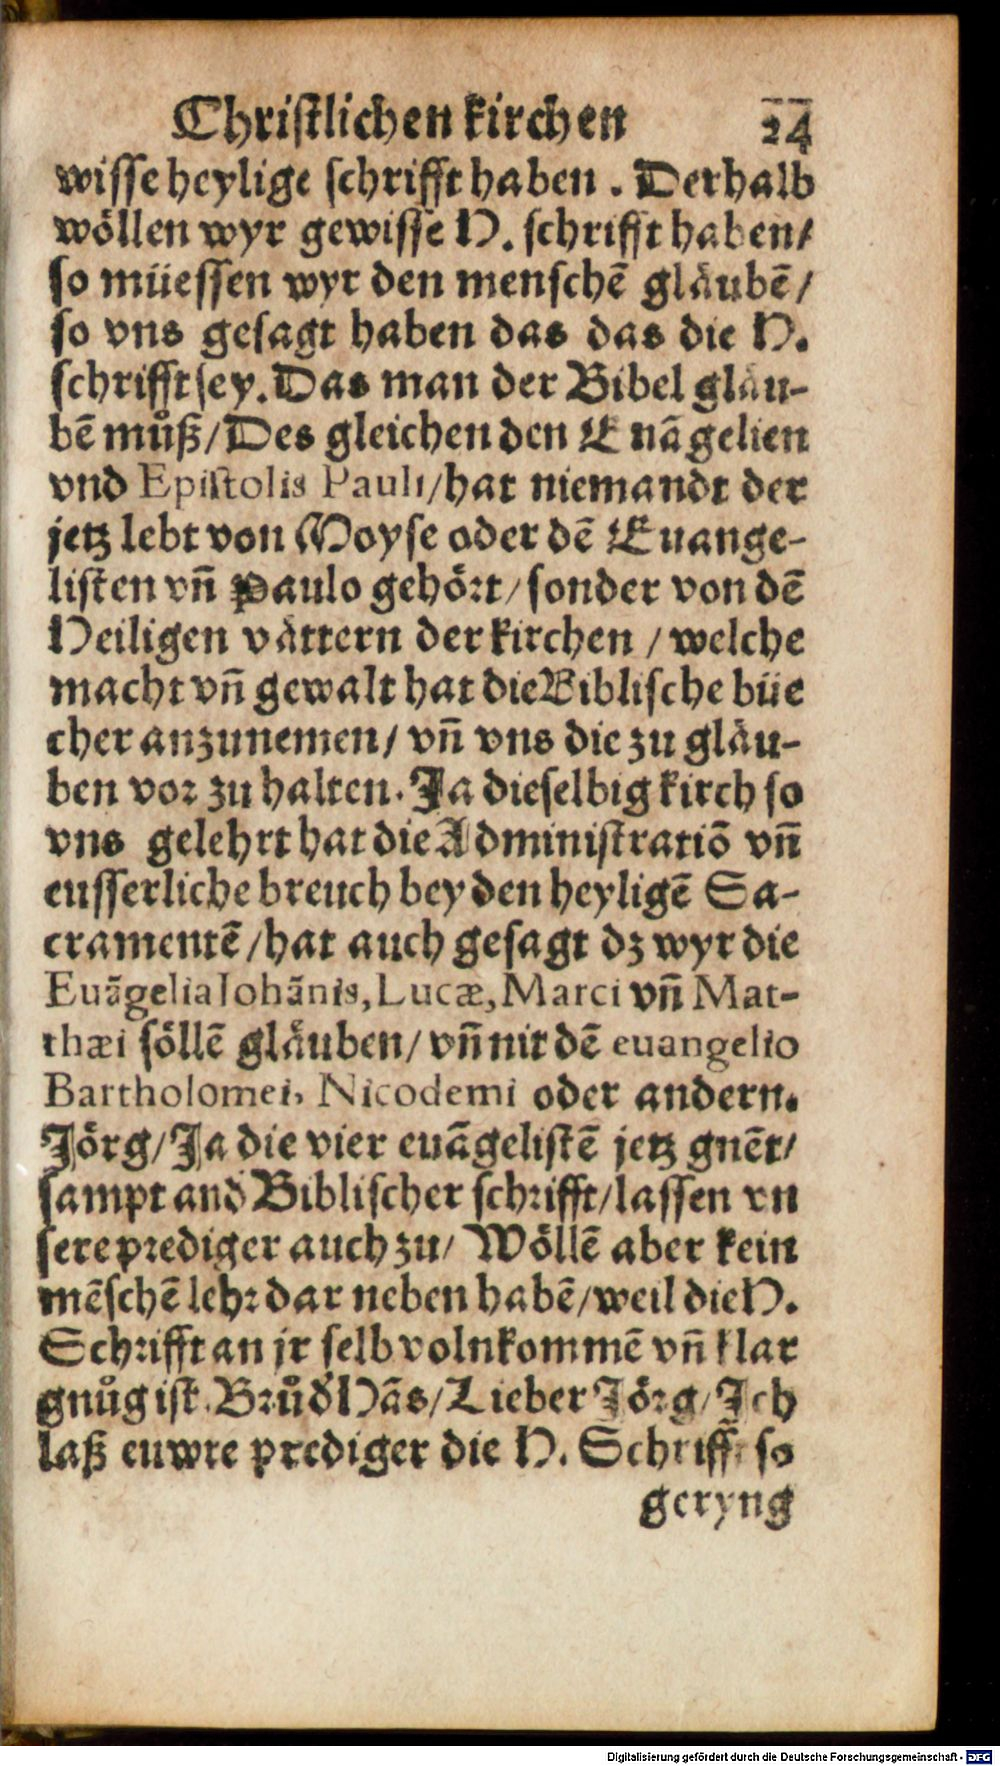 Christlichen kirchen 24
wisse heylige schrifft haben. Derhalb
wöllen wyr gewisse H. schrifft haben/
so müessen wyr den menschē gläubē/
so vns gesagt haben das das die H.
schrifft sey. Das man der Bibel gläu-
bē můß/ Des gleichen den Euāgelien
vnd Epistolis Pauli/ hat niemandt der
jetz lebt von Moyse oder dē Euange-
listen vñ Paulo gehört/ sonder von dē
Heiligen vättern der kirchen / welche
macht vñ gewalt hat die Biblische büe
cher anzunemen/ vñ vns die zu gläu-
ben vor zu halten. Ja dieselbig kirch so
vns gelehrt hat die Administratiō vñ
eusserliche breuch bey den heyligē Sa-
cramentē/ hat auch gesagt dz wyr die
Euāgelia Iohānis, Lucæ, Marci vñ Mat-
thæi söllē gläuben/ vñ nit dē euangelio
Bartholomei, Nicodemi oder andern.
Jörg/ Ja die vier euāgelistē jetz gnēt/
sampt and Biblischer schrifft/ lassen vn
sere prediger auch zu/ Wöllē aber kein
mēschē lehr dar neben habē/ weil die H.
Schrifft an jr selb volnkommē vñ klar
gnůg ist. Brůd Hās/ Lieber Jörg/ Ich
laß euwre prediger die H. Schrifft so
geryng
Digitalisierung gefördert durch die Deutsche Forschungsgemeinschaft - DFG